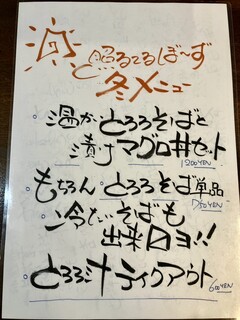 照るてるぼ〜ず
と冬メニュー
温かとろろそばと
漬けマグロ丼セット
1200YEN
もちろん、とろろそば単品
750YEN
冷たいそばも
出来ロヨ!!
とろろ汁テイクアウト
600YEN